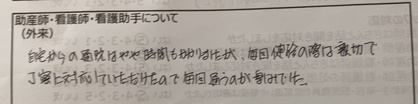 助産師・看護師・看護助手について
(外来)
自宅からの通院はやや時間もかかりましたが、毎回健診の際は親切で
丁寧に対応していただけたので毎回通うのが楽しみでした。